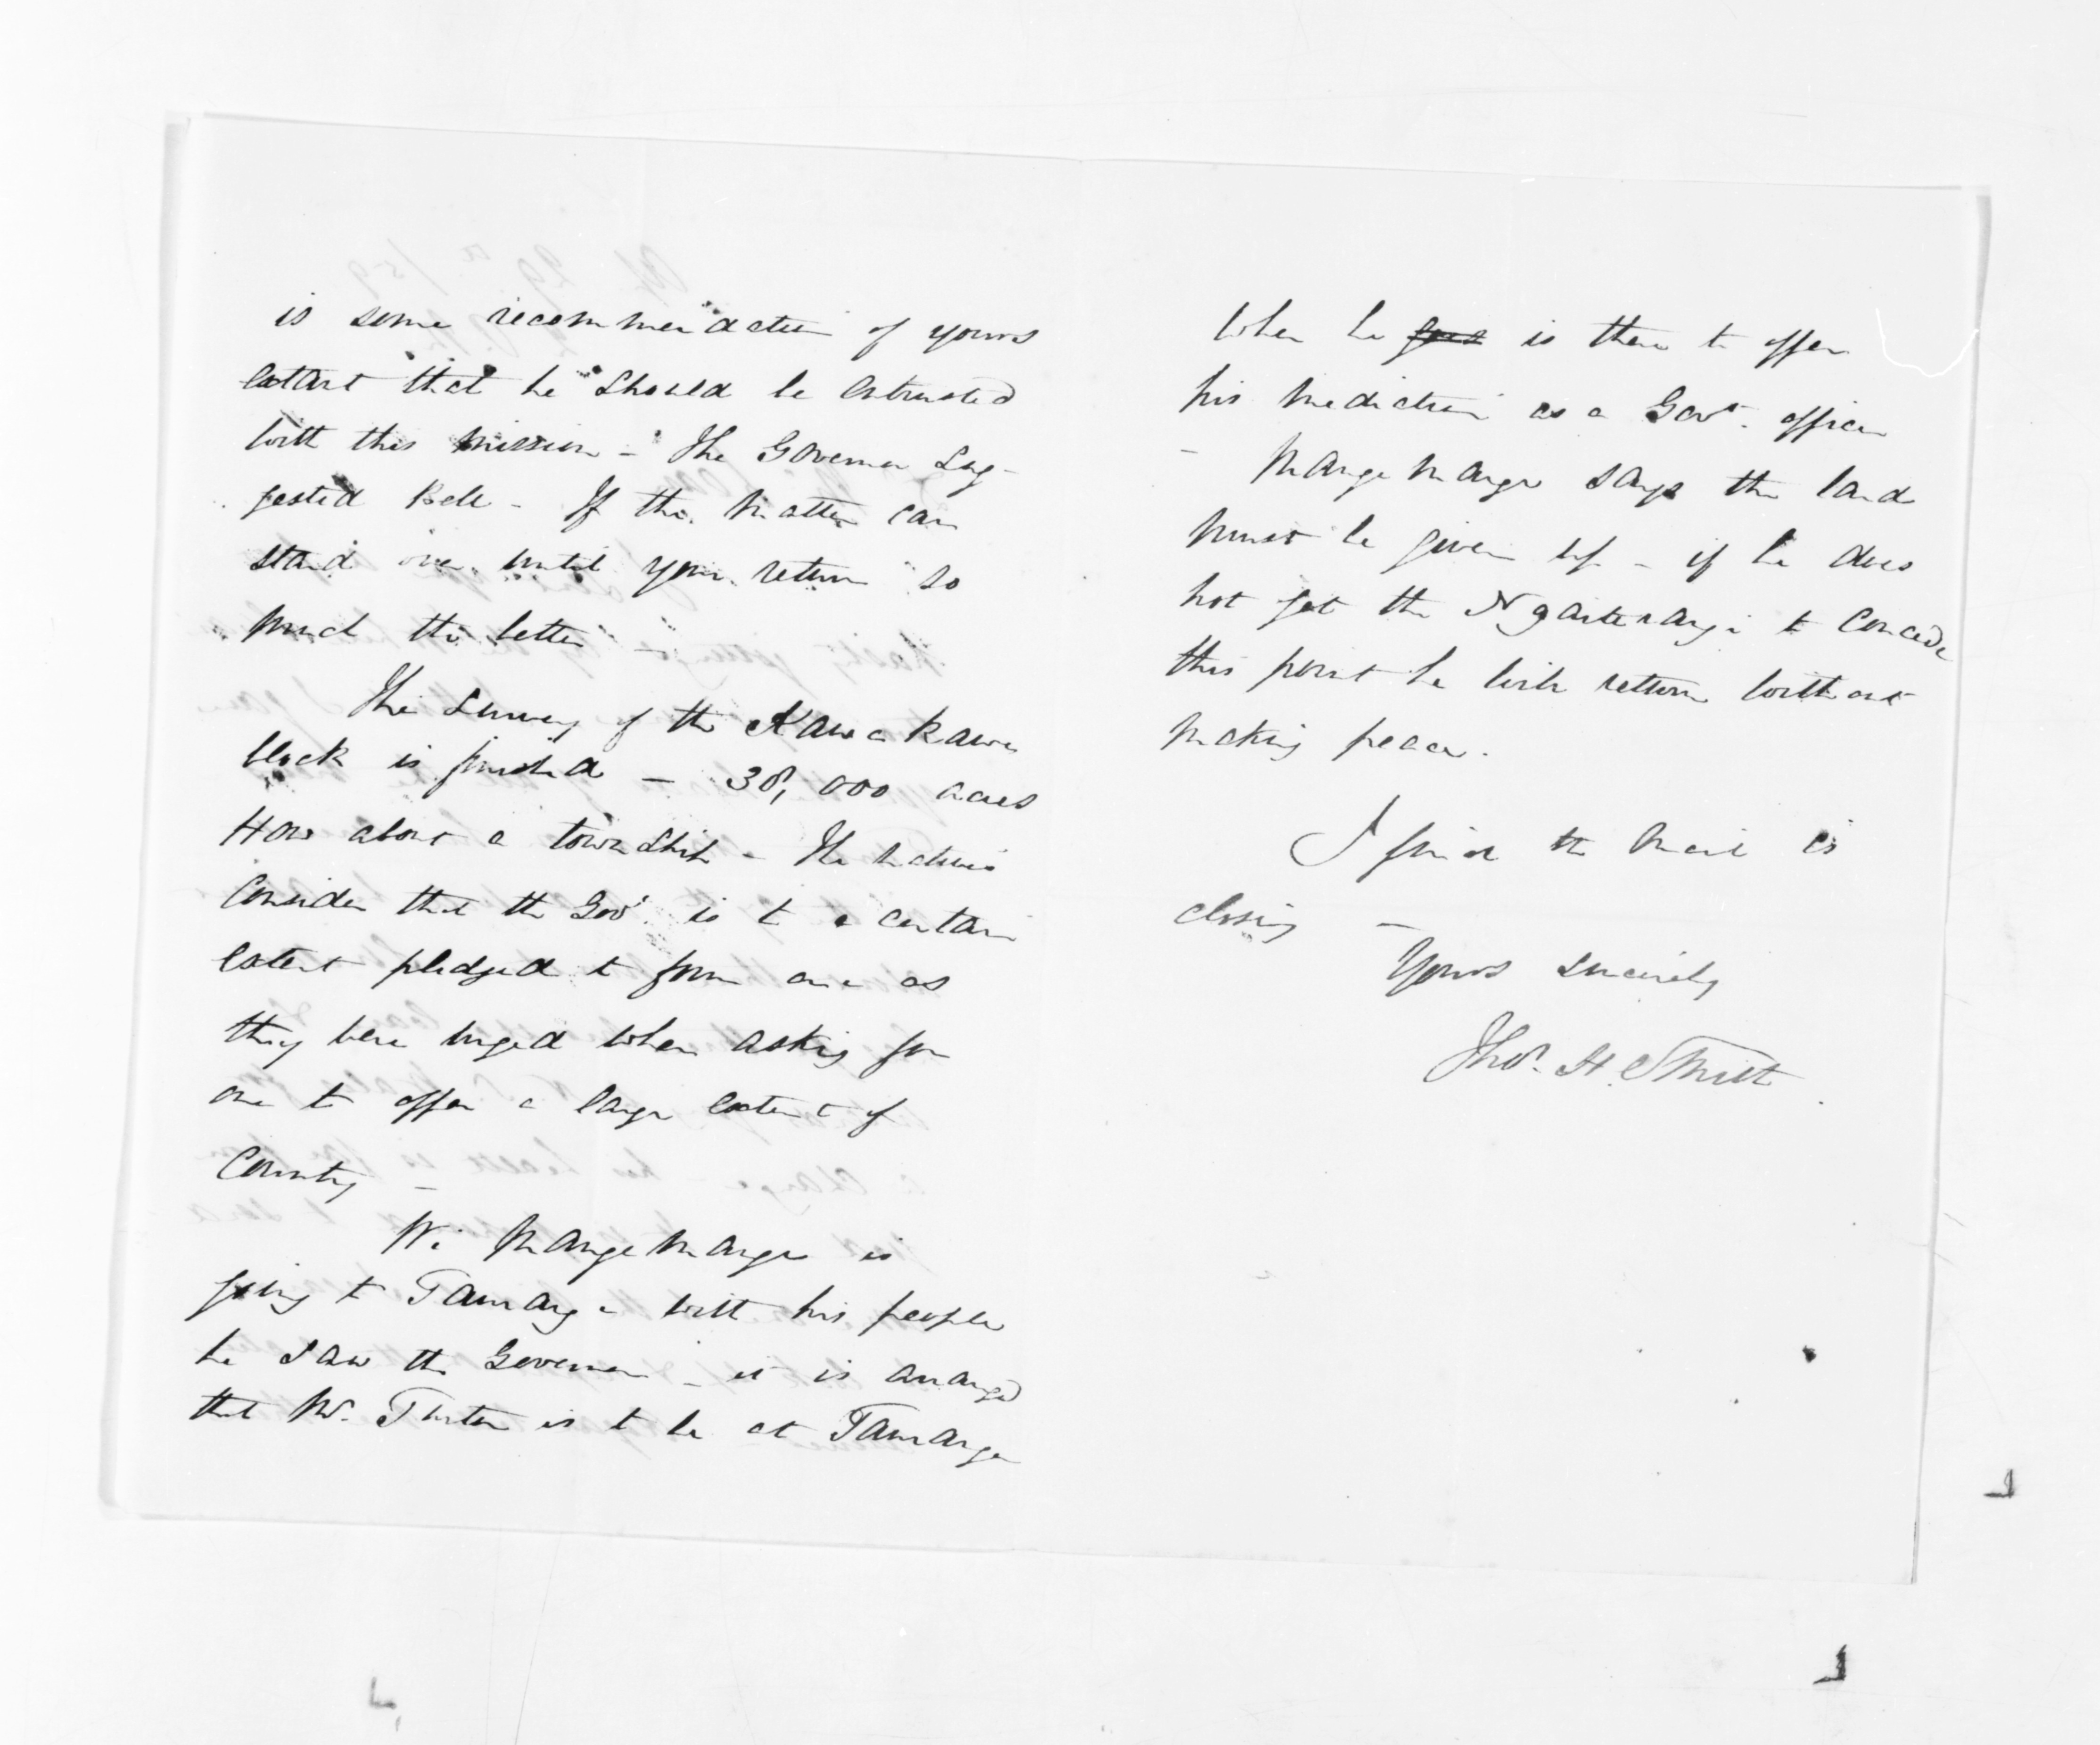 is some recommendation of yours
extant that he should be entrusted
with this mission - The Governor sug-
gested Bell - If the matter can
stand over until your return so
much the better -
The Survey of the Kawakawa
block is finished - 38,000 acres
How about a township - The natives
consider that the Govt. is to a certain
extent pledged to form one as
they were urged when asking for
one to offer a large extent of
Country -
Wi Mangemange is
going to Tauranga with his people
he saw the Governor - it is arranged
that Mr. Turton is to be at Tauranga
when he goes is there to offer
his mediation as a Govt. officer
- Mangemange says the land
must be given up - if he does
not get the Ngaiterangi to concede
this point he will return without
making peace.
I find the mail is
closing -
Yours sincerely
Thos. H. Smith